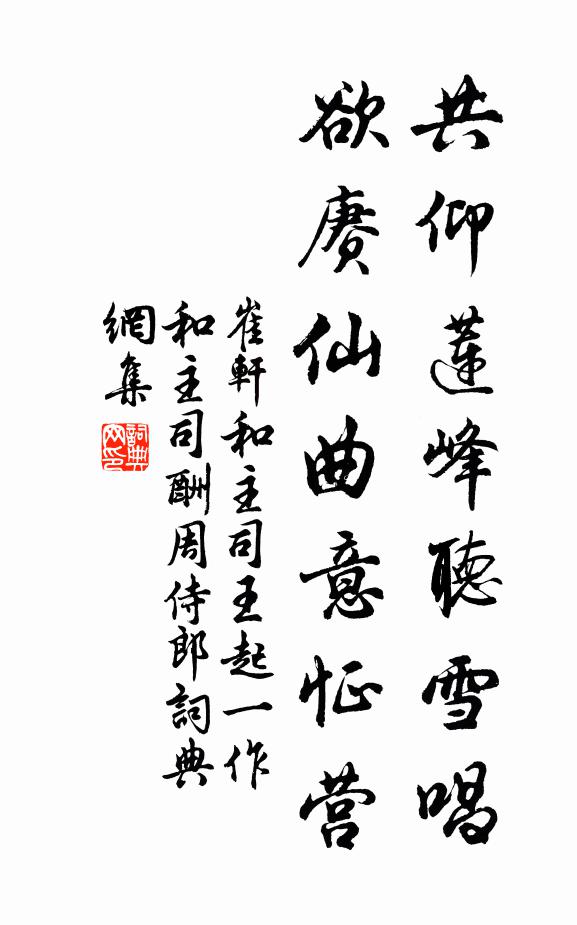 共仰蓮峰聽雪唱
欲赓仙曲意怔营
崔軒和主司王起一作
和主司酬周侍郎詞典
網集
詞典网印